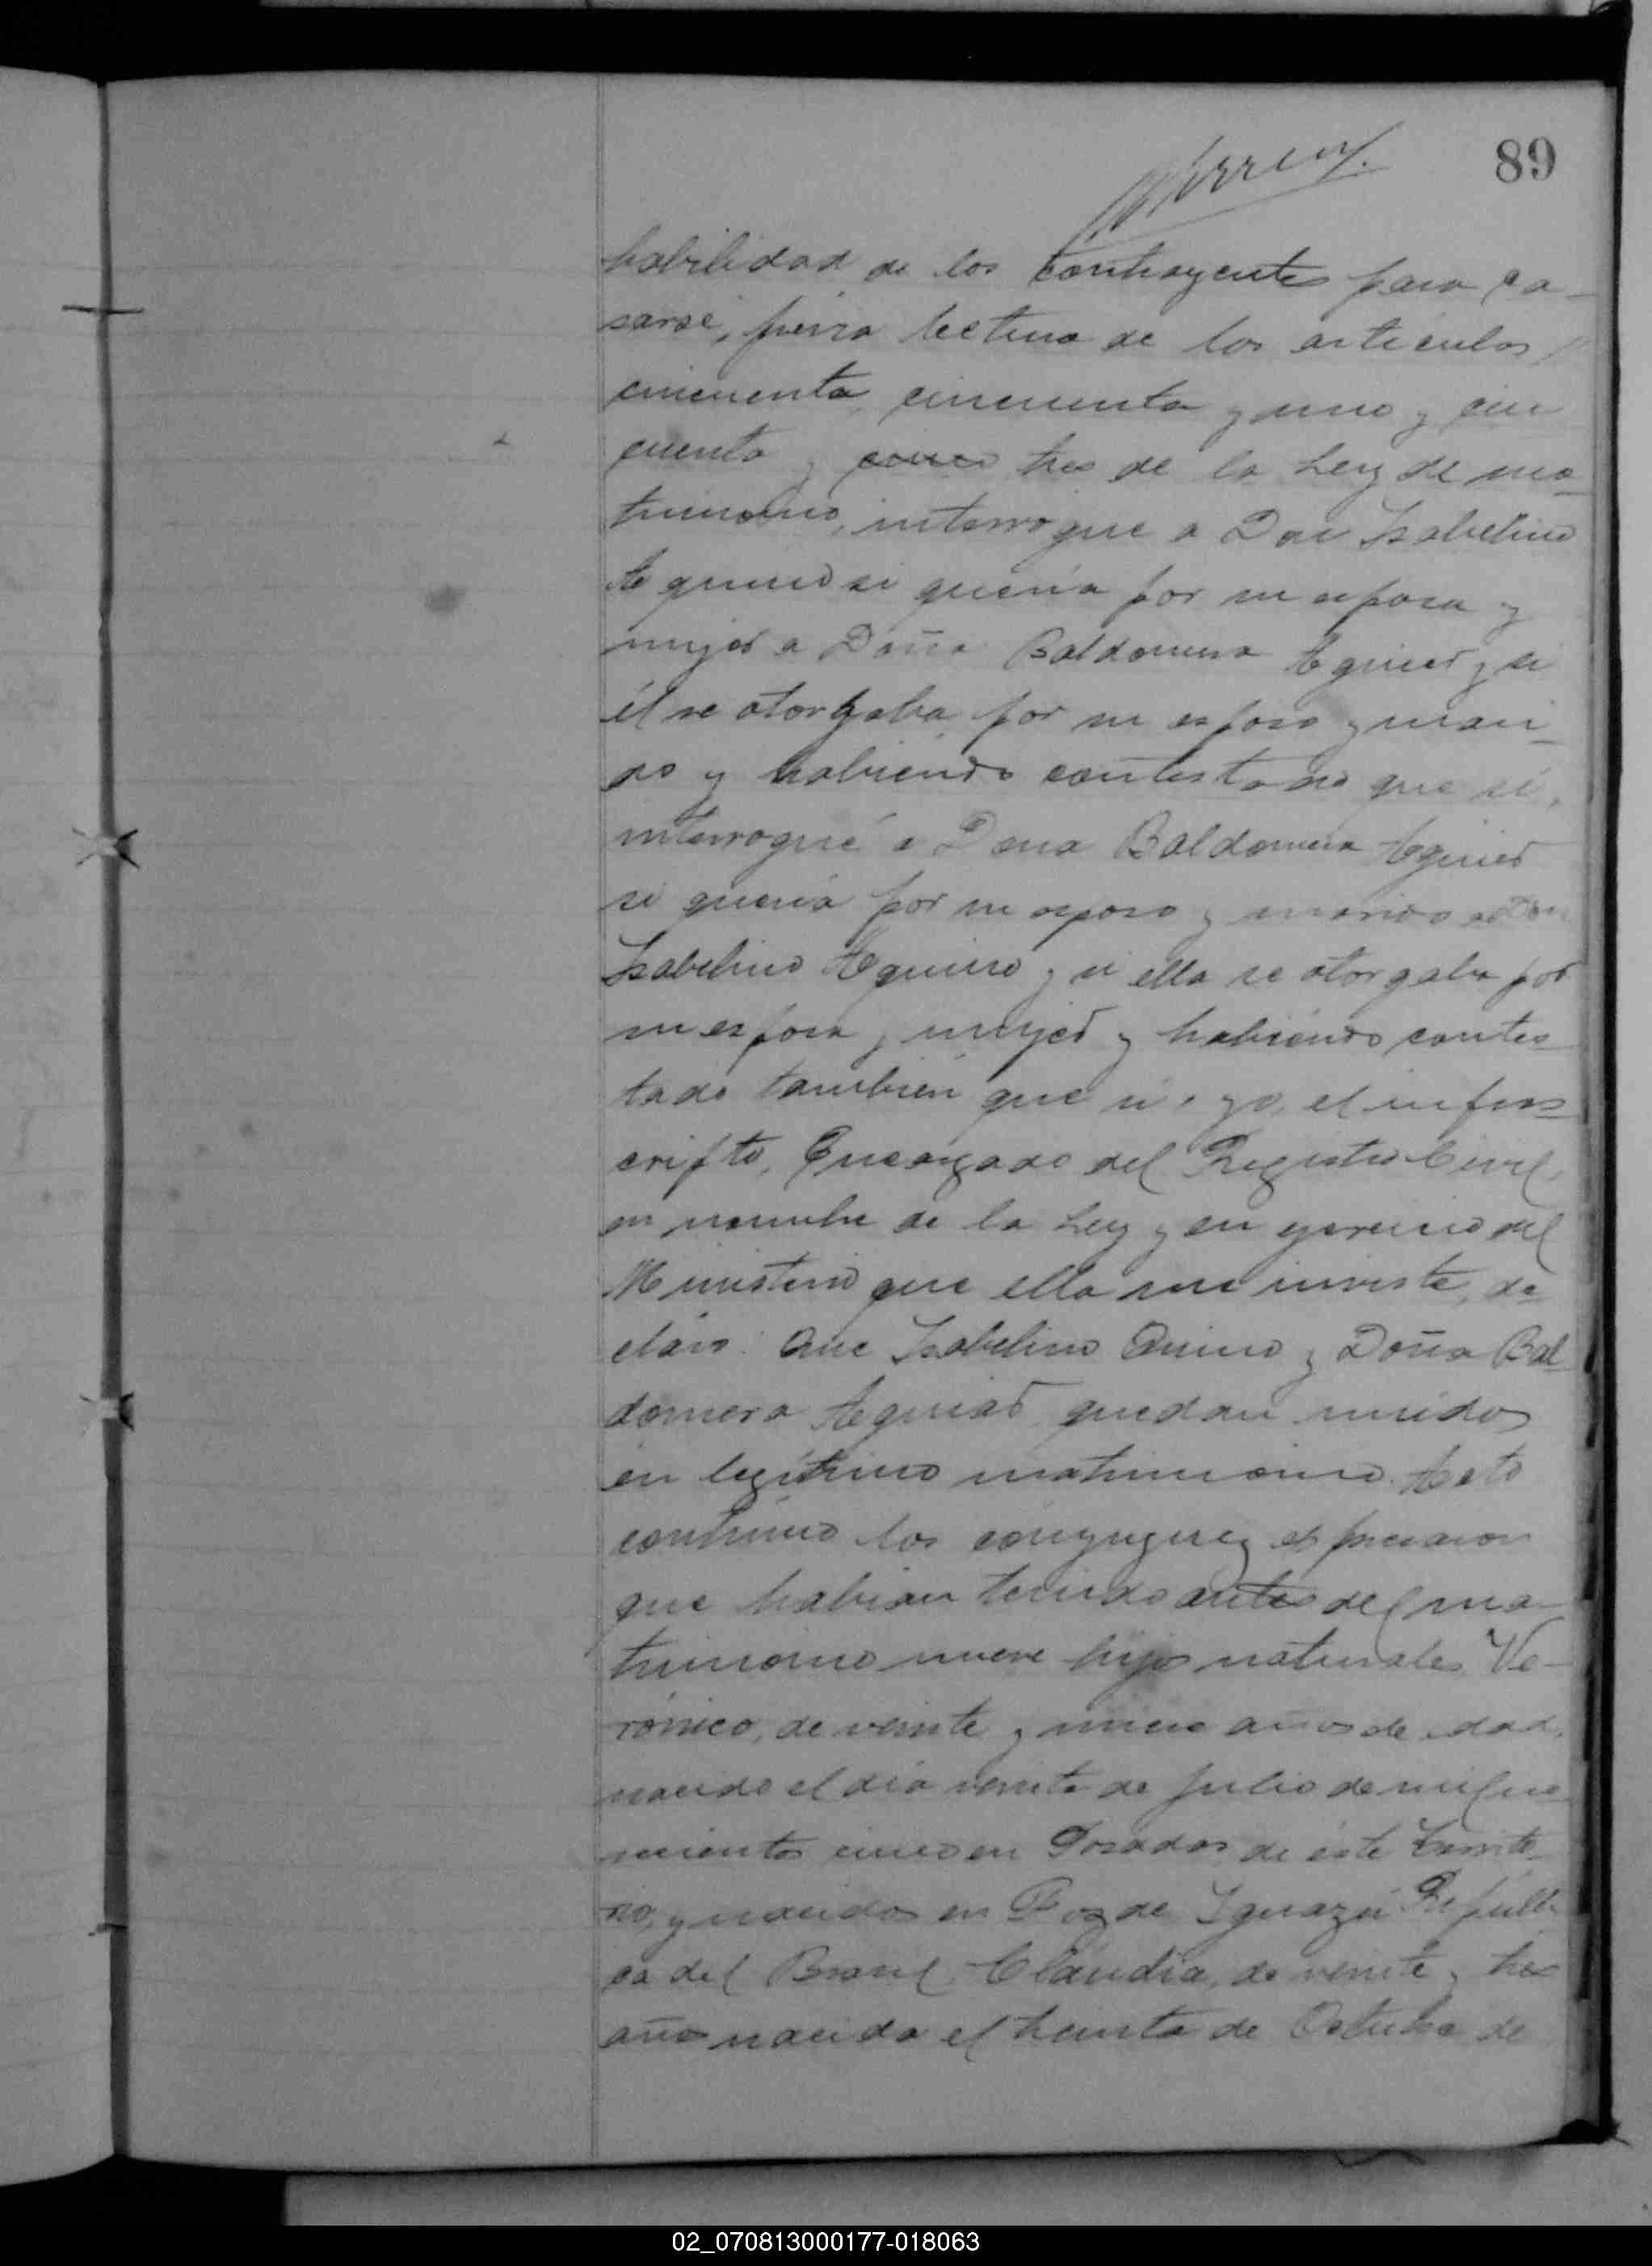 89
habilidad de los contrayentes para ca-
sarse, previa lectura de los artículos
cincuenta, cincuenta y uno y cin
cuenta y cinco tres de la Ley de ma-
trimonio, interrogue a Don Isabelino
Aquino si quería por su esposa y
mujer a Doña Baldomera Aguiar y si
él se otorgaba por su esposo y mari-
do y habiendo contestado que sí,
interrogué a Dona Baldomera Aguiar
si quería por su esposo y marido a Don
Isabelino Aquino y si ella se otorgaba por
su esposa y mujer y habiendo contes-
tado también que si, yo, el infras-
cripto, Encargado del Registro Civil,
en nombre de la Ley y en ejercicio del
Ministerio que ella me inviste, de-
claro: Que Isabelino Quino y Doña Bal-
domera Aguiar quedan unidos
en legítimo matrimonio. Acto
contínuo los conyugues expresaron
que habian tenido antes del ma-
trimonio nueve hijos naturales Ve-
rónico, de veinte y nueve años de edad,
nacido el día veinte de Julio de mil nove
cientos cinco en Posadas de éste Territo-
rio, y nacidos en Foz de Iguazú Repúbli
ca del Brasil Cláudia, de veinte y tres
años nacida el treinta de Octubre de
02_070813000177-018063